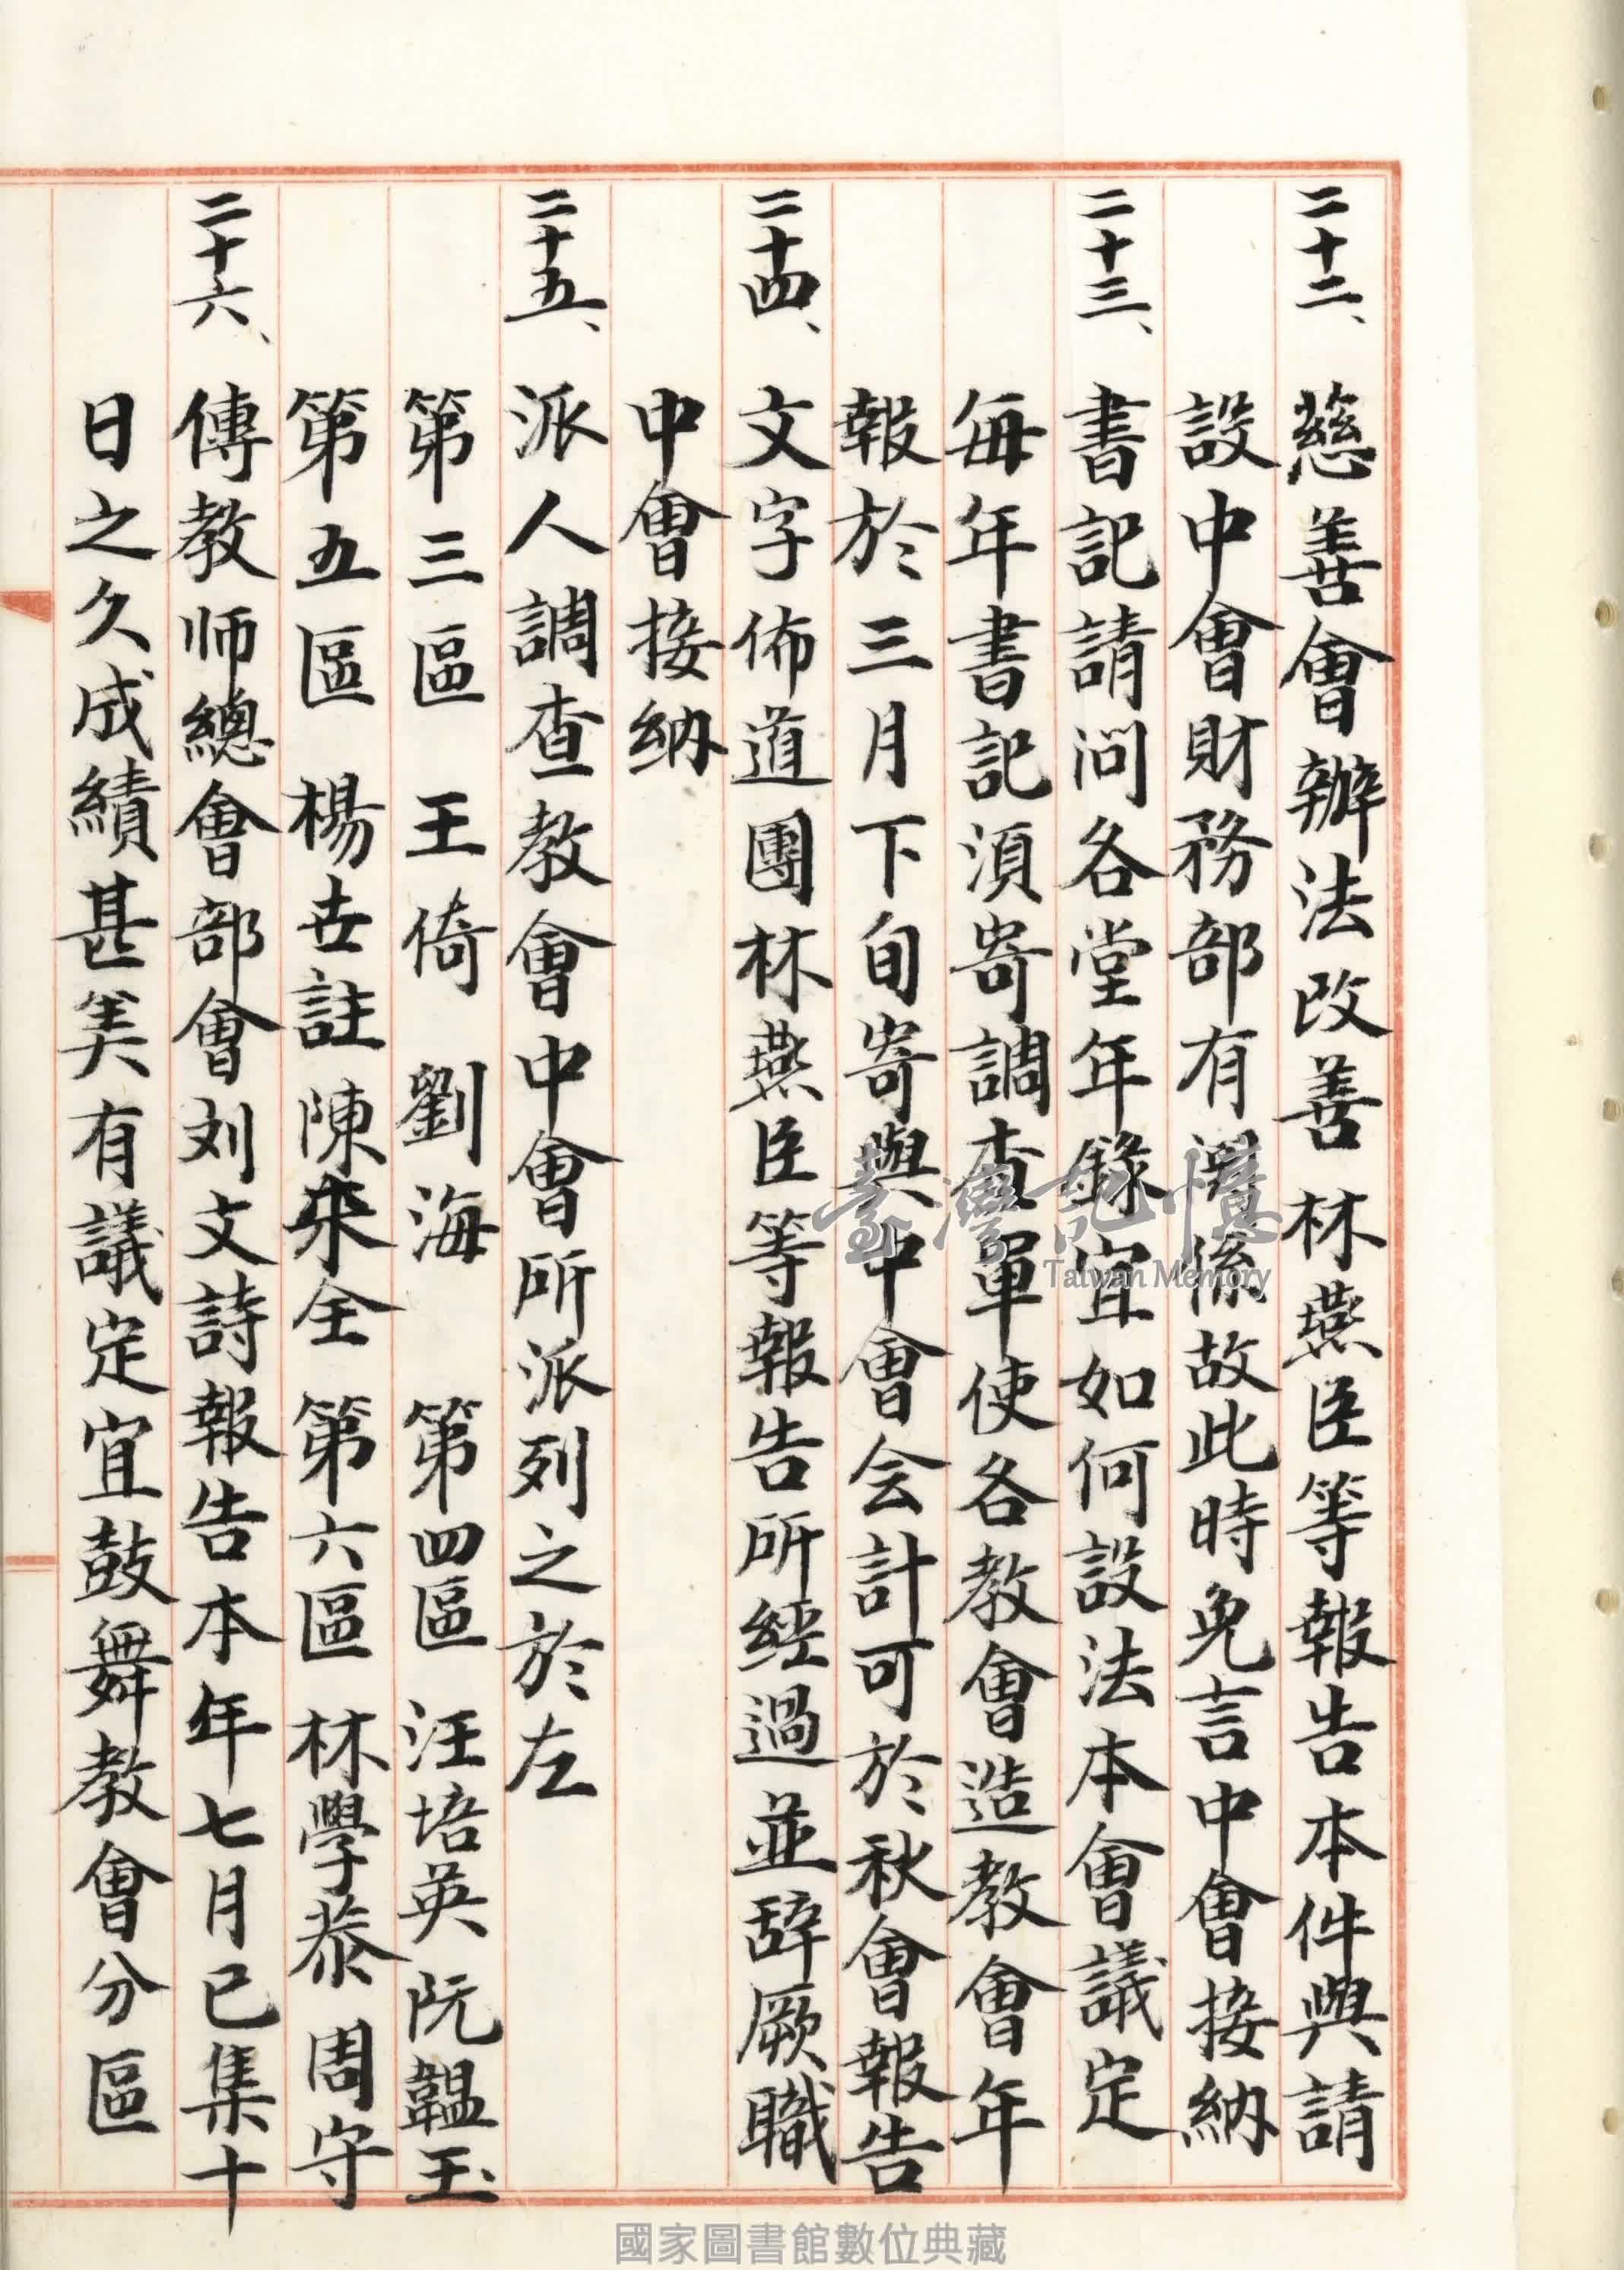 二十二、慈善會辦法改善 林燕臣等報告本件與請
設中會財務部有關係故此時免言中會接納
二十三、書記請问各堂年年錄宜如何設法本會議定
每年書記須寄調查單使各教會造教會年
報於三月下旬寄與中會会計可於秋會報告
二十四、文字佈道團林燕臣等報告所經過並辞厥職
中會接納
二十五、派人調查教會中會所派列之於左
第三區 王倚 劉海 第四區 汪培英 阮韞玉
第五區 楊世註 陳來全 第六區 林學恭 周守
二十六、傳教师總會部會刘文詩報告本年七月已集十
日之久成績甚美有議定宜鼓舞教會分區
臺灣記憶
Taiwan Memory
國家圖書館數位典藏